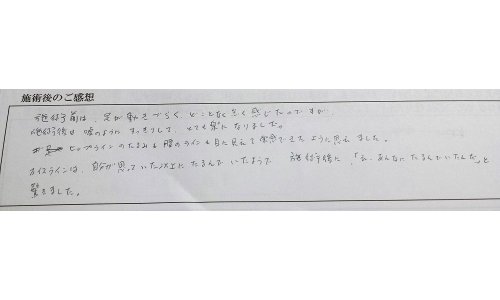 施術後のご感想
施術前は、足が動きづらく、どことなく重く感じたのですが、
施術後は嘘のように すっきりして とても楽になりました。
ヒップラインのたるみも腰のラインも目に見えて実感できたように思えました。
ラインは、自分が思っていた以上に たるんで いたようで 施術後に、「え、あんなに たるんでいたんだ。」と
驚きました。